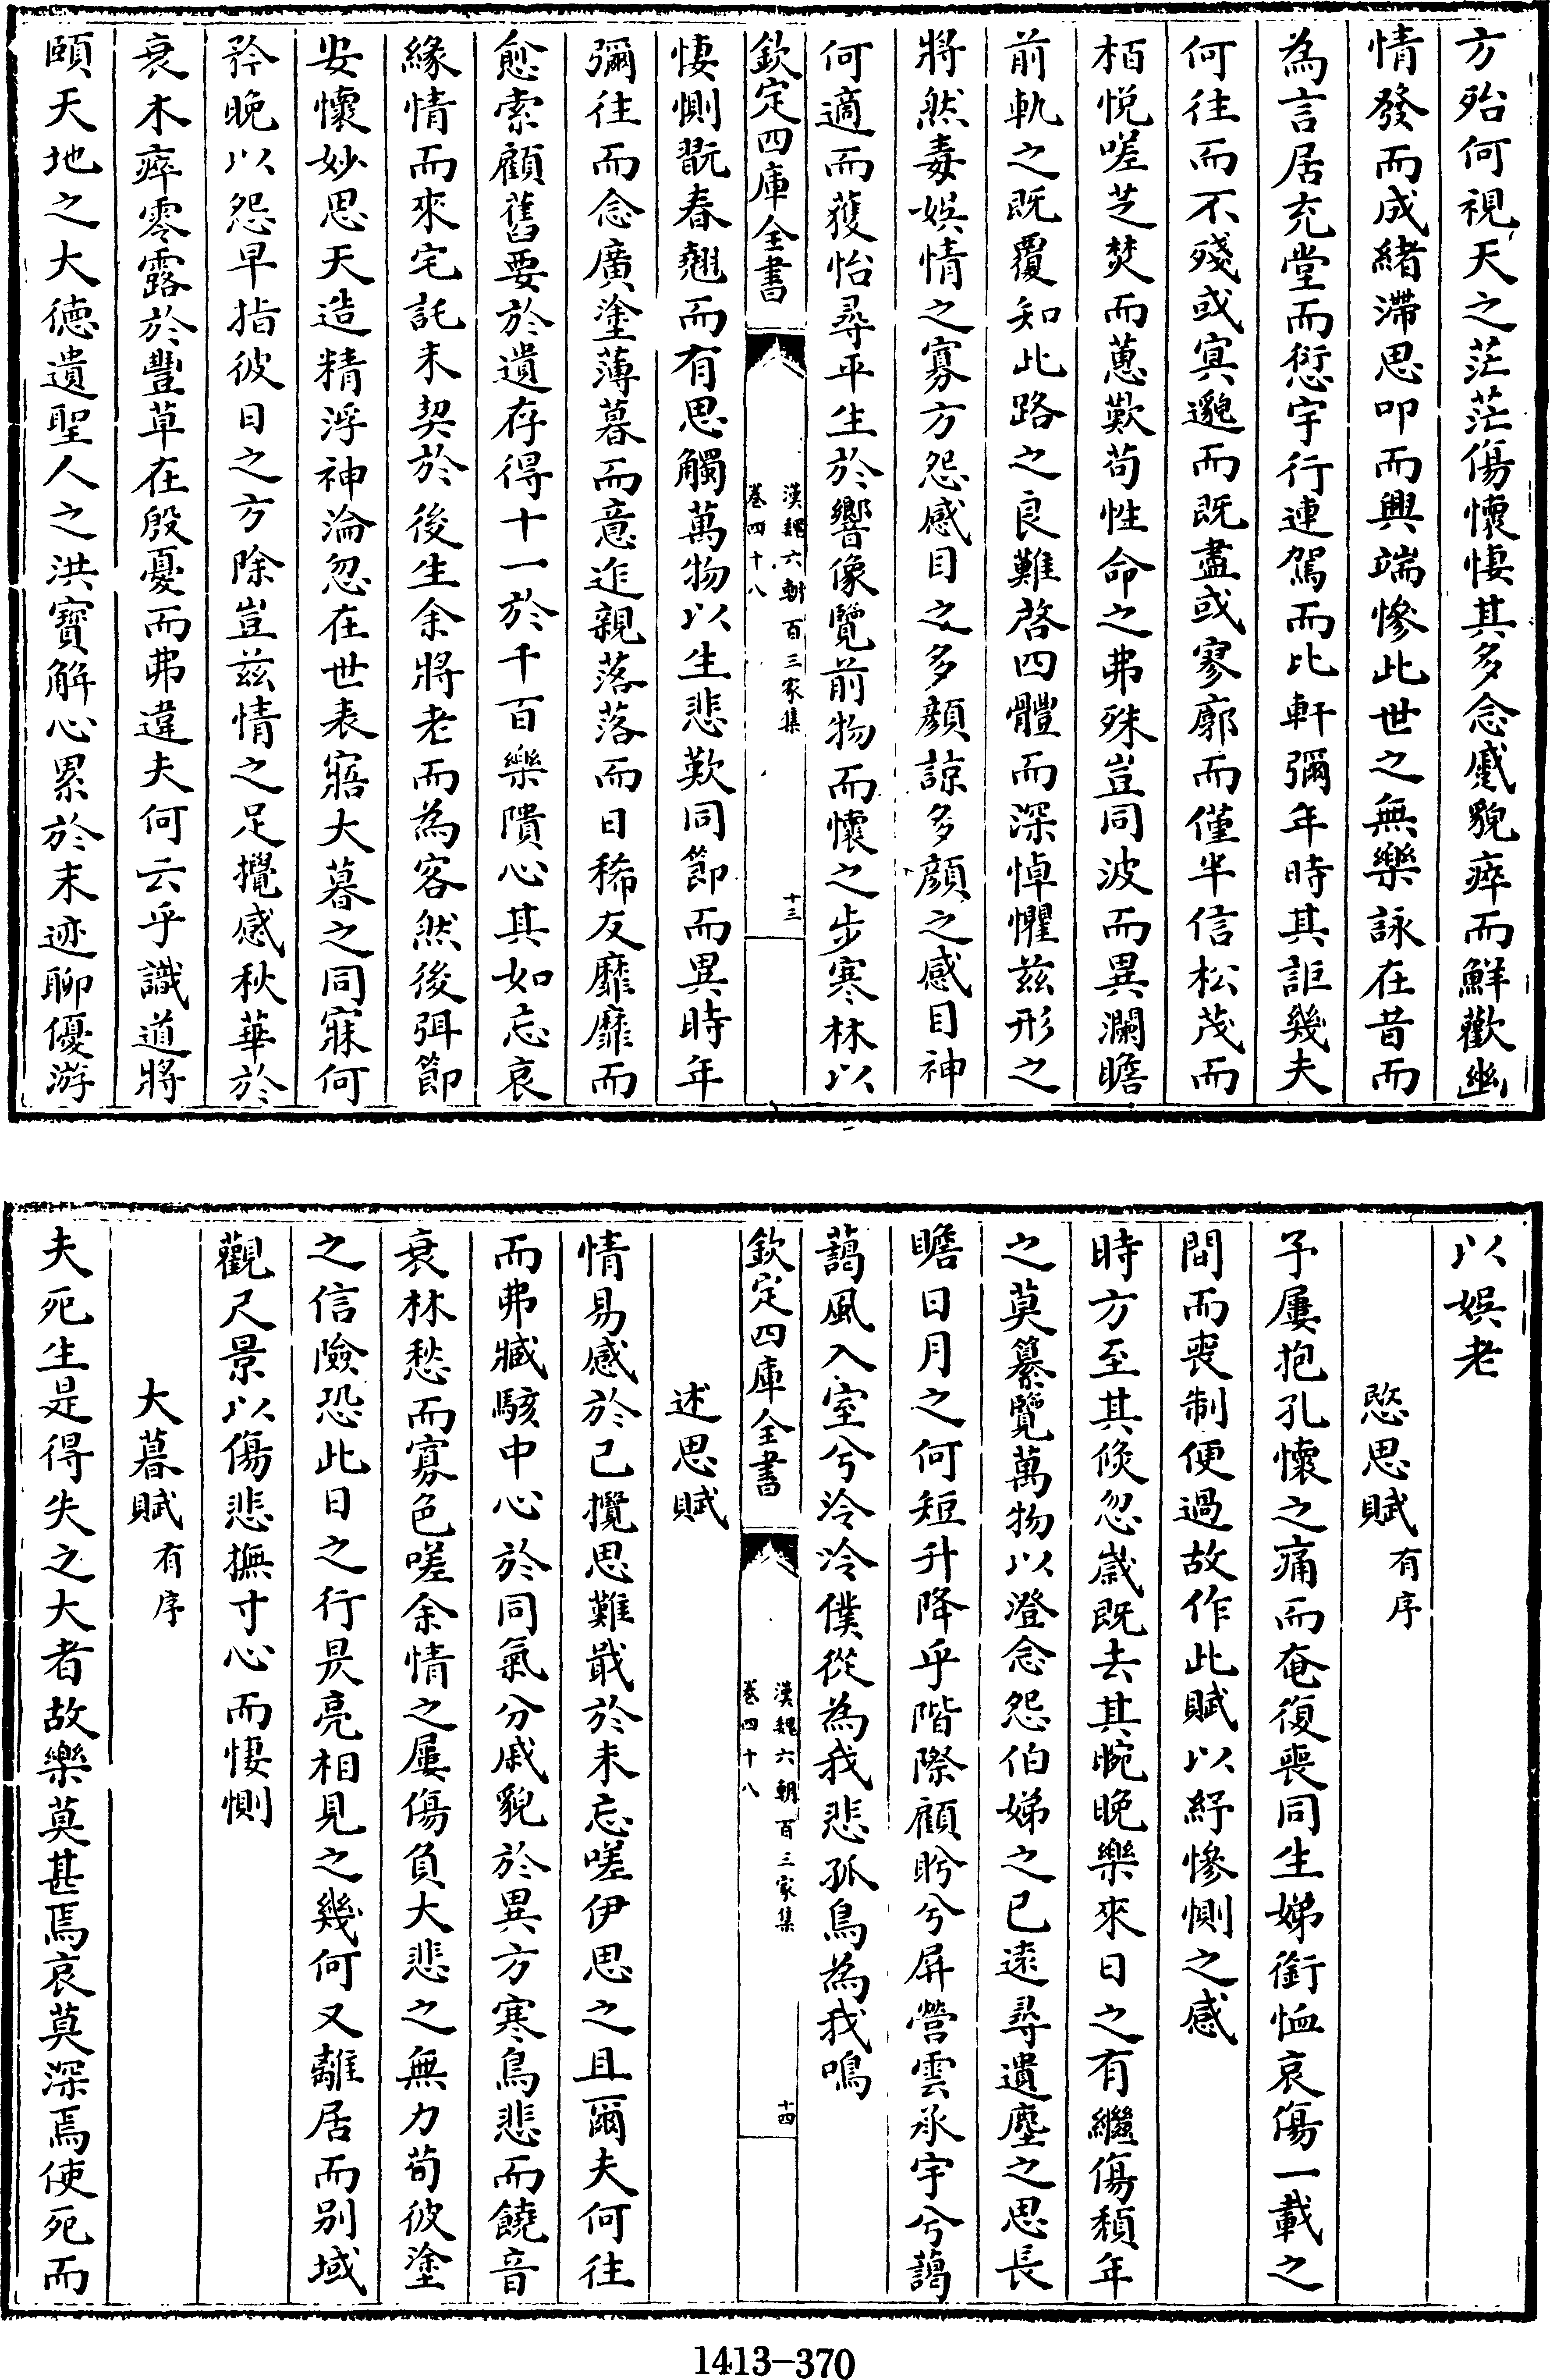 方殆何視天之茫茫傷懷悽其多念慼貌瘁而鮮歡幽
情發而成緒滯思叩而興端慘此世之無樂詠在昔而
為言居充堂而衍宇行連駕而比軒彌年時其詎幾夫
何往而不殘或冥邈而既盡或寥廓而僅半信松茂而
栢悅嗟芝焚而蕙歎苟性命之弗殊豈同波而異瀾瞻
前軌之既覆知此路之良難啓四體而深悼懼兹形之
將然毒娛情之寡方怨感目之多顔諒多顔之感目神
何適而獲怡尋平生於響像覽前物而懷之步寒林以
欽定四庫全書
漢魏六朝百三家集
卷四十八
十三
悽惻翫春翹而有思觸萬物以生悲歎同節而異時年
彌往而念廣塗薄暮而意迮親落落而日稀友靡靡而
愈索顧舊要於遺存得十一於千百樂隤心其如忘哀
緣情而來宅託末契於後生余將老而為客然後弭節
安懷妙思天造精浮神淪忽在世表寤大暮之同寐何
矜晚以怨早指彼日之方除豈兹情之足攪感秋華於
衰木瘁零露於豐草在殷憂而弗違夫何云乎識道將
頤天地之大德遺聖人之洪寶解心累於末迹聊優游
以娛老
愍思賦有序
予屢抱孔懷之痛而奄復喪同生娣銜恤哀傷一載之
間而喪制便過故作此賦以紓慘惻之感
時方至其倏忽歲既去其晼晚樂來日之有繼傷頽年
之莫纂覽萬物以澄念怨伯娣之已遠尋遺塵之思長
瞻日月之何短升降乎階際顧盼兮屏營雲承宇兮藹
藹風入室兮泠泠僕從為我悲孤鳥為我鳴
欽定四庫全書
漢魏六朝百三家集
卷四十八
十四
述思賦
情易感於已攬思難戢於未忘嗟伊思之且爾夫何往
而弗臧駭中心於同氣分戚貌於異方寒鳥悲而饒音
衰林愁而寡色嗟余情之屢傷負大悲之無力茍彼塗
之信險恐此日之行昃亮相見之幾何又離居而别域
觀尺景以傷悲撫寸心而悽惻
大暮賦有序
夫死生是得失之大者故樂莫甚焉哀莫深焉使死而
1413-370